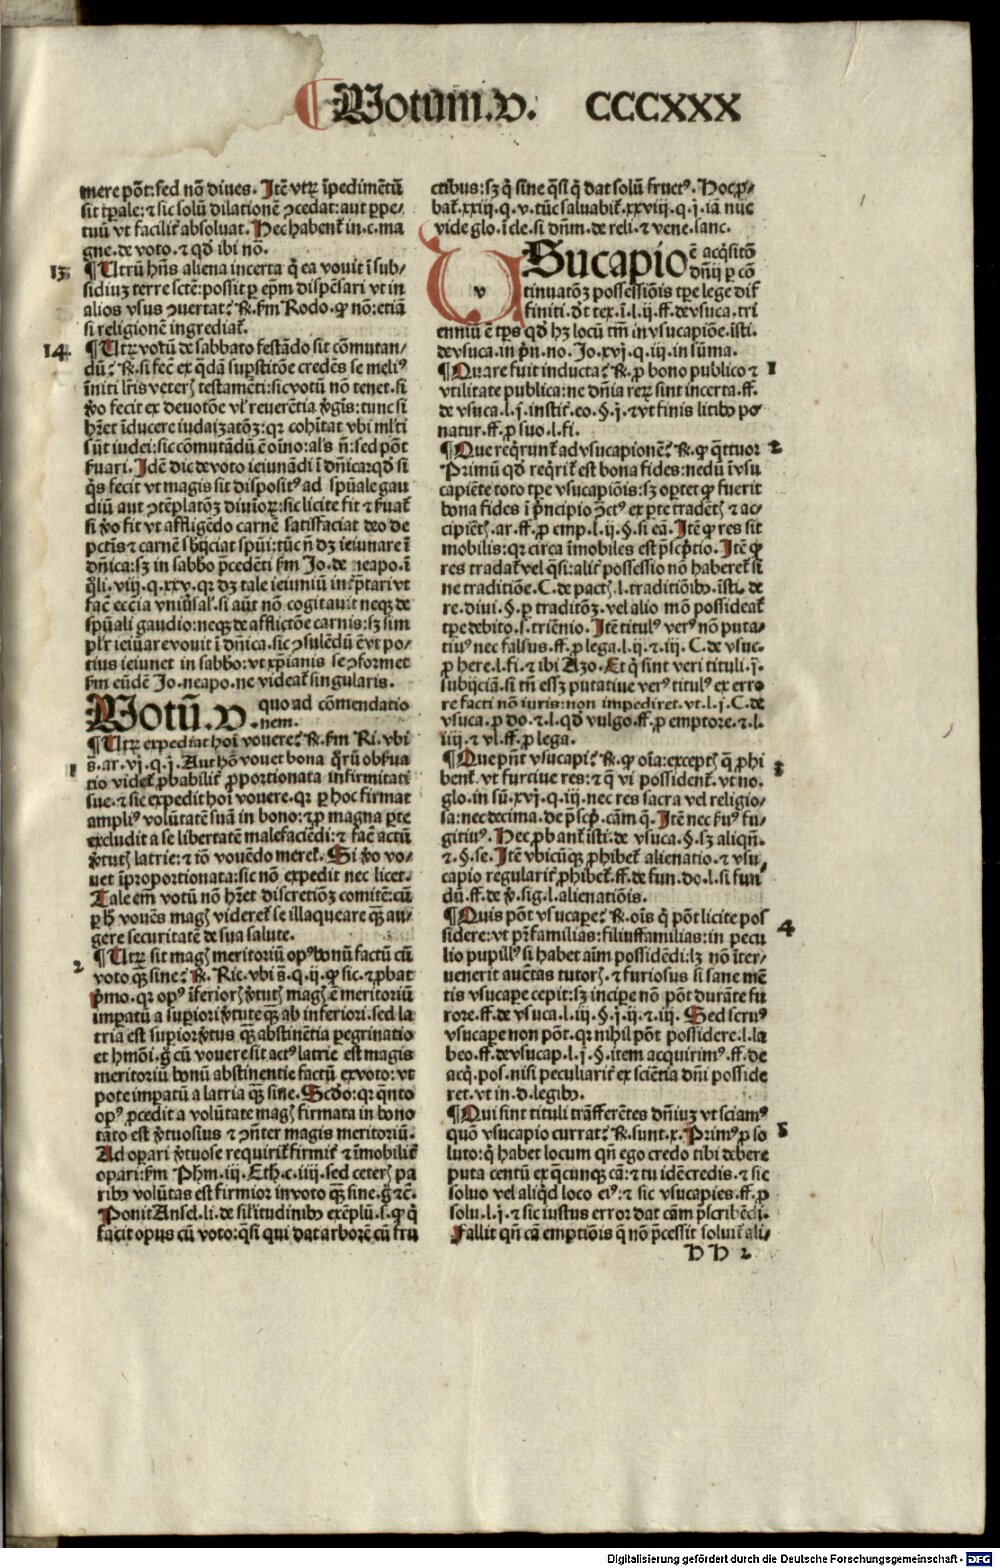 Votum.v. CCCXXX
mere põt: sed nõ diues. Itẽ vtꝝ ĩpedimẽtũ
sit tꝑale: ⁊ sic solũ dilationẽ ↄcedat: aut ꝑpe-
tuũ vt facilit᷑ absoluat. Hec habent᷑ in.c.ma
gne.de voto.⁊ qđ ibi nõ.
13 ¶ Utrũ hñs aliena incerta q̃ ea vouit ĩ sub-
sidiuꝫ terre sctẽ: possit ꝑ epm̃ dispẽsari vt in
alios vsus ↄuertat᷑: ℟. ẜm Rodo. ꝙ nõ: etiã
si religionẽ ingrediat᷑.
14 ¶ Utꝝ votũ de sabbato festãdo sit cõmutan-
dũ: ℟. si fecẽ ex q̃dã suꝑstitõe credẽs se meliꝰ
ĩniti lr̃is veterꝭ testamẽti: sic votũ nõ tenet. si
ṽo fecit ex deuotõe vl̕ reuerẽtia ṽgĩs: tunc si
hr̃et ĩducere iudaizatõꝫ: qꝛ cohĩtat vbi ml̕ti
sũt iudei: sic cõmutãdũ ẽ oĩno: al̕s ñ: sed põt
ẜuari. Idẽ dic de voto ieiunãdi ĩ dñica: qꝛ đ si
q̃s fecit vt magis sit dispositꝰ ad spũale gau
diũ aut ↄtẽplatõꝫ diuĩoꝝ: sic licite fit ⁊ ẜuat᷑
si ṽo fit vt affligẽdo carnẽ satisfaciat deo de
pctĩs ⁊ carnẽ sbijciat spũi: tũc ñ dꝫ ieiunare ĩ
dñica: sꝫ in sabbo p̃cedẽti ẜm Jo.de neapo.ĩ
q̃li.viij.q.xxv.qꝛ dꝫ tale ieiuniũ inꝑp̃tari vt
facẽ ecc̃ia vniũsal̕. si aũt nõ cogitauit neqꝫ de
spũali gaudio: neqꝫ de afflictõe carnis: sꝫ sim
pl̕r ieiũare vouit ĩ dñica. sic ↄsulẽdũ ẽ vt po-
tius ieiunet in sabbo: vt xp̃ianis se ↄformet
ẜm eũdẽ Jo.neapo.ne videat᷑ singularis.
Votũ.v quo ad cõmendatio
nem.
1 ¶ Utꝝ expediat hoĩ vouere: ℟. ẜm Ri.vbi
s̃.ar.vj.q.j. Aut hõ vouet bona q̃rũ obẜua
tio videt᷑ ꝓbabilit᷑ ꝓportionata infirmitati
sue.⁊ sic expedit hoĩ vouere.qꝛ ꝑ hoc firmat
ampliꝰ volũtatẽ suã in bono: ⁊ ꝓ magna ꝑte
excludit a se libertatẽ malefaciẽdi: ⁊ facẽ actũ
ṽtutꝭ latrie: ⁊ iõ vouẽdo meret᷑. Si ṽo vo-
uet ĩproportionata: sic nõ expedit nec licet.
Tale em̃ votũ nõ hr̃et discretiõꝫ comitẽ: cũ
ꝑ ħ vouẽs magꝭ videret᷑ se illaqueare q̃ꝫ au-
gere securitatẽ de sua salute.
2 ¶ Utꝝ sit magꝭ meritoriũ opꝰ bonũ factũ cũ
voto q̃ꝫ sine: ℟. Ric.vbi s̃.q.ij. ꝙ sic.⁊ ꝓbat
p̃mo.qꝛ opꝰ ĩferiorꝭ ṽtutꝭ magꝭ ẽ meritoriũ
imꝑatũ a suꝑiori ṽtute q̃ꝫ ab inferiori. sed la
tria est suꝑior ṽtus q̃ꝫ abstinẽtia ꝑegrinatio
et hmõi. g̃ cũ vouere sit actꝰ latrie est magis
meritoriũ bonũ abstinentie factũ ex voto: vt
pote imꝑatũ a latria q̃ꝫ sine. Scđo: qꝛ q̃nto
opꝰ ꝓcedit a volũtate magꝭ firmata in bono
tãto est ṽtuosius ⁊ ↄñter magis meritoriũ.
Ad oꝑari ṽtuose requirit᷑ firmit᷑ ⁊ ĩmobilit᷑
oꝑari: ẜm Phm̃.iij.Eth.c.iiij. sed ceterꝭ pa
ribꝰ volũtas est firmior in voto q̃ꝫ sine. g̃ ⁊c̃.
Ponit Ansel.li.de sil̕itudinibꝰ exẽplũ.s. ꝙ q̃
facit opus cũ voto: q̃si qui dat arborẽ cũ fru
ctibus: sꝫ q̃ sine q̃si q̃ dat solũ fructꝰ. Hoc ꝓ-
bat᷑.xxiij.q.v.tũc saluabit᷑.xxviij.q.j.iã nũc
vide glo.ĩ cle.si dñm.de reli.⁊ vene.sanc.
v Usucapio ẽ acq̃sitõ
dñij ꝑ cõ
tinuatõꝫ possessiõis tꝑe lege dif
finiti. đt tex.ĩ.l.ij.ff.de vsuca. tri
enniũ ẽ tꝑs qđ hꝫ locũ tm̃ in vsucapiõe.ĩsti.
de vsuca.in p̃n.no.Jo.xvj.q.iij.in sũma.
¶ Quare fuit inducta: ℟. ꝓ bono publico ⁊ 1
vtilitate publica: ne dñia reꝝ sint incerta.ff.
de vsuca.l.j.instit᷑.eo.§.j.⁊ vt finis litibꝰ po
natur.ff.ꝓ suo.l.fi.
¶ Que req̃runt᷑ ad vsucapionẽ: ℟. ꝙ q̃ttuor 2
Primũ qđ req̃rit᷑ est bona fides: nedũ ĩ vsu
capiẽte toto tꝑe vsucapiõis: sꝫ oꝑtet ꝙ fuerit
bona fides ĩ p̃ncipio ↄctꝰ ex ꝑte tradẽtꝭ ⁊ ac-
cipiẽtꝭ.ar.ff.ꝓ emp.l.ij.§.si eã. Itẽ ꝙ res sit
mobilis: qꝛ circa ĩmobiles est p̃scp̃tio. Itẽ ꝙ
res tradat᷑ vel q̃si: alit᷑ possessio nõ haberet᷑ si
ne traditiõe.C.de pactꝭ.l.traditiõibꝰ.ĩsti.de
re.diui.§.ꝑ traditõꝫ. vel alio mõ possideat᷑
tꝑe debito.s̃.triẽnio. Itẽ titulꝰ verꝰ nõ puta-
tiuꝰ nec falsus.ff.ꝓ lega.l.ij.⁊.iij.C.de vsuc.
ꝓ here.l.fi.⁊ ibi Azo. Et q̃ sint veri tituli.j̃.
subijciã. si tñ essꝫ putatiue verꝰ titulꝰ ex erro
re facti nõ iuris: non impediret.vt.l.j.C.de
vsuca.ꝓ do.⁊.l.qđ vulgo.ff.ꝓ emptore.⁊.l.
iiij.⁊ vl.ff.ꝓ lega.
¶ Que pñt vsucapi: ℟. ꝙ oĩa: exceptꝭ q̃ ꝓhi 3
bent᷑.vt furtiue res: ⁊ q̃ vi possident᷑.vt no.
glo.in sũ.xvj.q.iij.nec res sacra vel religio-
sa: nec decima.de p̃scp̃.cãm q̃. Itẽ nec ẜuꝰ fu-
gitiuꝰ. Hec ꝓbant᷑ ĩsti.de vsuca.§.sꝫ aliqñ.
⁊.§.se. Itẽ vbicũqꝫ ꝓhibet᷑ alienatio.⁊ vsu-
capio regularit᷑ ꝓhibet᷑.ff.de fun.do.l.si fun
dũ.ff.de ṽ.sig.l.alienatiõis.
¶ Quis põt vsucape: ℟. oĩs q̃ põt licite pos 4
sidere: vt pr̃familias: filiusfamilias: in pecu
lio pupillꝰ si habet aĩm possidẽdi: lꝫ nõ ĩter-
uenerit auc̃tas tutorꝭ.⁊ furiosus si sane mẽ
tis vsucaꝑe cepit: sꝫ inciꝑe nõ põt durãte fu
rore.ff.de vsuca.l.iij.§.j.ij.⁊.iij. Sed seruꝰ
vsucaꝑe non põt.qꝛ nihil põt possidere.l.la
beo.ff.de vsucap.l.j.§.item acquirimꝰ.ff.de
acq̃.pos.nisi peculiarit᷑ ex sciẽtia dñi posside
ret.vt in.d.legibꝰ.
¶ Qui sint tituli trãfferẽtes dñiuꝫ vt sciamꝰ 5
quõ vsucapio currat: ℟. sunt.x. Primꝰ ꝓ so
luto: q̃ habet locum qñ ego credo tibi debere
puta centũ ex q̃cunqꝫ cã: ⁊ tu idẽ credis.⁊ sic
soluo vel aliq̃d loco eiꝰ: ⁊ sic vsucapies.ff.ꝓ
solu.l.j.⁊ sic iustus error dat cãm p̃scribẽdi.
Fallit qñ cã emptiõis q̃ nõ p̃cessit soluit᷑ ali-
hh 2
Digitalisierung gefördert durch die Deutsche Forschungsgemeinschaft - DFG